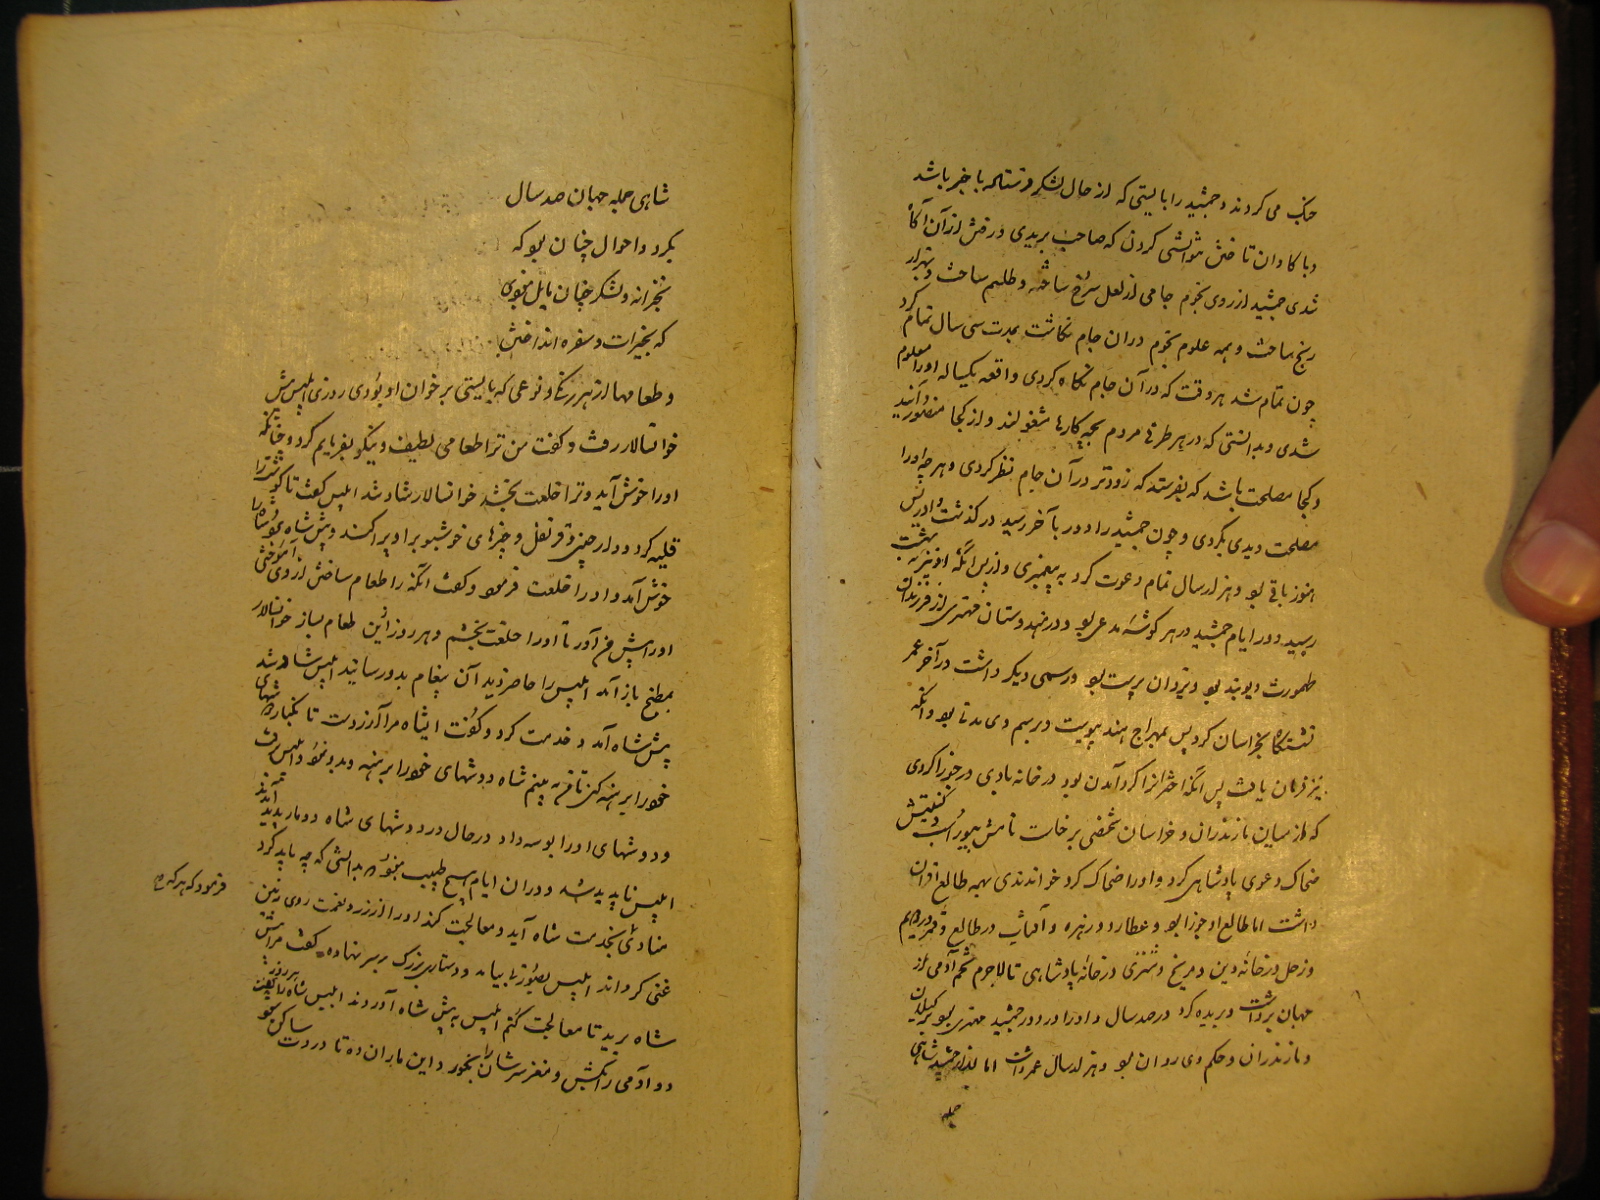 جنگ می کردند و جمشید را بایستی که از حال لشکر فرستاده با خبر باشد
و با کاوان تا ختن نتوانستی کردن که صاحب بریدی و رفتن از آن آگاه
شدی جمشید از روی نجوم جامی از لعل سرخ ساخته و طلسم ساخت و بسیار
رنج ساخت و همه علوم نجوم در آن جام نگاشت بمدت سی سال تمام کرد
چون تمام شد هر وقت که در آن جام نگاه کردی واقعه یکساله او را معلوم
شدی و بدانستی که در هر طرفی مردم بچه کارها مشغولند و از کجا منصور آیند
و کجا مصلحت باشد که بفرستد که زودتر در آن جام نظر کردی و هر چه او را
مصلحت دیدی بکردی و چون جمشید را دور بآخر رسید در گذشت و ادریس
هنوز باقی بود و هزار سال تمام دعوت کرد به پیغمبری و از پس آنکه او نیز به بهشت
رسید و در ایام جمشید در هر گوشه مدعی بود و در هندوستان مهتری از فرزندان
طهمورث دیوبند بود و یزدان پرست بود و رسمی دیگر داشت در آخر عمر
نشستگاه بخراسان کرد پس بمهراج هند پیوست و برسم وی مدتا بود و آنکه
نیز فرمان یافت پس آنکه اخترانرا گرد آمدن بود در خانه بادی در جوزا کردی
که از میان مازندران و خراسان شخصی برخاست نامش بیوراسب و کنیتش
ضحاک دعوی پادشاهی کرد و او را ضحاک کرد خواندندی بهمه طالع اقران
داشت اما طالع او جوزا بود و عطارد و زهره و آفتاب در طالع و قمر در دهم
و زحل در خانه دین و مریخ و مشتری در خانه پادشاهی تا لاجرم تخم آدمی از
جهان برداشت و بریده کرد در صد سال و او را در دور جمشید مهتری بود بر گیلان
و مازندران و حکم وی روان بود و هزار سال عمر داشت اما بعد از جمشید شاهی
جمله
شاهی جمله جهان صد سال
بکرد و احوال چنان بود که
بخزانه و لشکر چنان مایل نبودی
که بخیرات و سفره انداختن
و طعامها از هر رنگ و نوعی که بایستی بر خوان او بودی روزی ابلیس پیش
خوانسالار رفت و گفت من ترا طعامی لطیف و نیکو بفرمایم کرد و چنانکه
او را خوش آید و ترا خلعت بخشد خوانسالار شاد شد ابلیس گفت تا گوشت را
قلیه کرد و دارچینی و قرنفل و چیزهای خوشبو برو پراکند و پیش شاه برد شاه را
خوش آمد و او را خلعت فرمود و گفت آنکه را طعام ساختن از وی آموختی
او را پیش من آور تا او را خلعت بخشم و هر روز ازین طعام بساز خوانسالار
بمطبخ باز آمد ابلیس را حاضر دید آن پیغام بدو رسانید ابلیس شاد شد
پیش شاه آمد و خدمت کرد و گفت ای شاه مرا آرزوست تا یکبار دوشهای
خود را برهنه کنی تا من به بینم شاه دوشهای خود را برهنه و بدو نمود ابلیس رفت
و دوشهای او را بوسه داد در حال در دوشهای شاه دو مار پدید آمد
ابلیس ناپدید شد و در آن ایام هیچ طبیب نبود که بدانستی که چه باید کرد
فرمود که هر که
منادی بخدمت شاه آید و معالجت کند او را از زر و نعمت روی زمین
غنی گرداند ابلیس بصورتی بیامد و دستاری بزرگ بر سر نهاده گفت مرا پیش
شاه برید تا معالجت کنم ابلیس به پیش شاه آوردند ابلیس شاه را گفت هر روز
دو آدمی را بکش و مغز سرشان را بخور و این ماران ده تا دردت ساکن شود